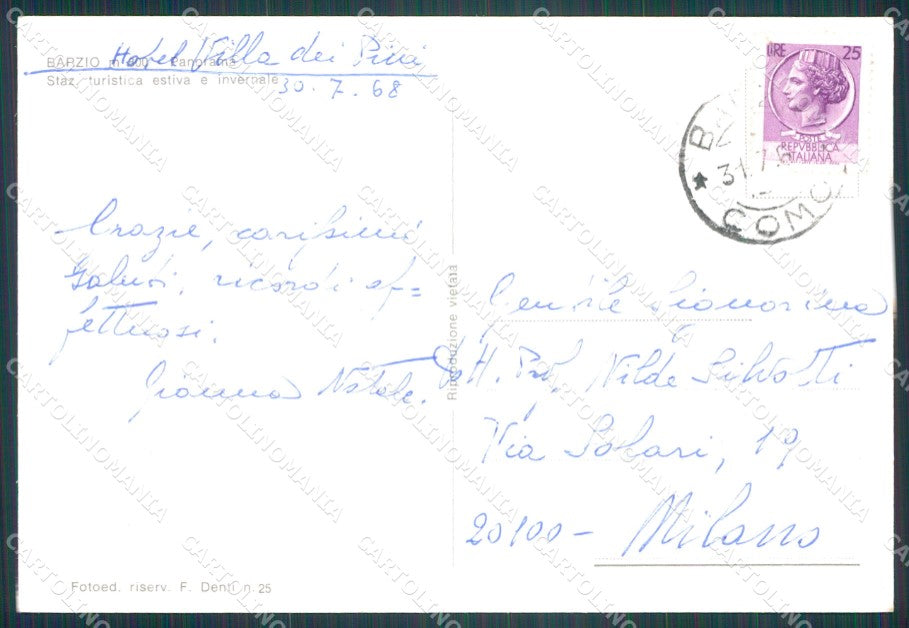 Hotel Villa dei Pini
BARZIO m. Panorama
Staz. turistica estiva e invernale
30.7.68
Grazie, carissimi
saluti, ricordi af=
fettuosi.
Gianna Natale.
Fotoed. riserv. F. Denti n. 25
Riproduzione vietata
LIRE 25
POSTE
REPVBBLICA
ITALIANA
31.7
COMO
Gentile Signorina
Prof. Nilde Silvotti
Via Solari, 19
20100 - Milano
CARTOLINOMANIA